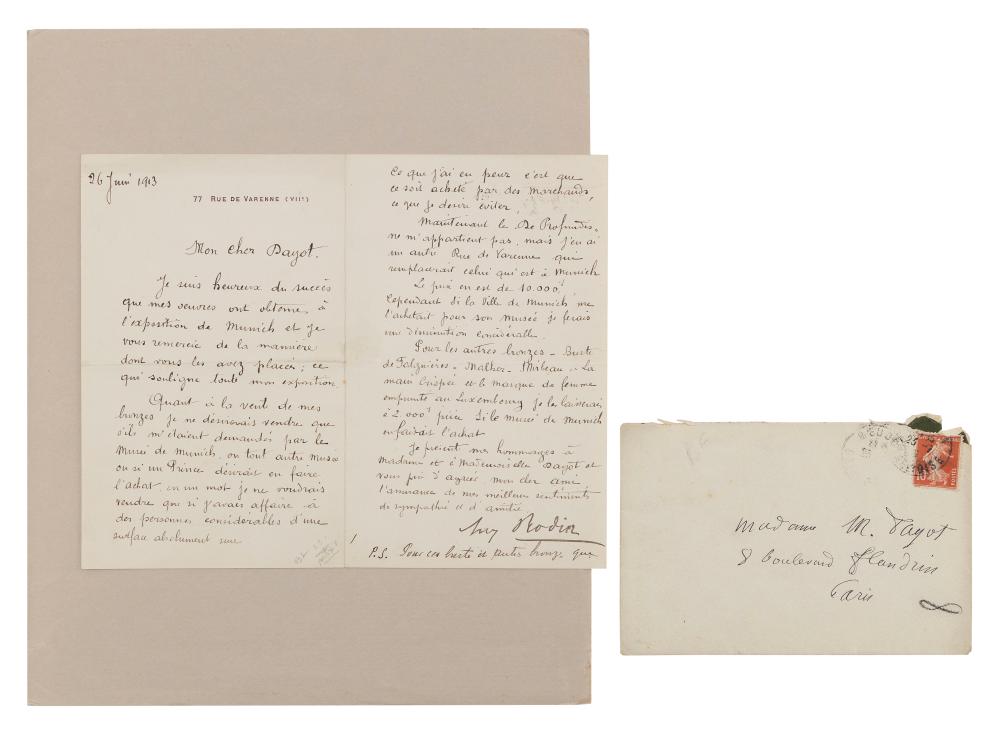 26 Juin 1913
77 RUE DE VARENNE (VIIe)
Mon cher Dayot.
Je suis heureux du succès
que mes oeuvres ont obtenu, à
l'exposition de Munich et je
vous remercie de la mannière
dont vous les avez placées; ce
qui souligne toute mon exposition
Quant à la vente de mes
bronzes je ne désirerais vendre que
s'ils m'étaient demandés par le
Musée de Munich, ou tout autre Musée
ou si un Prince désirait en faire
l'achat. en un mot je ne voudrais
vendre que si j'avais affaire à
des personnes considérables d'une
surface absolument sure
Ce que j'ai eu peur c'est que
ce soit acheté par des marchands,
ce que je desire éviter.
Maintenant le De Profundis,
ne m'appartient pas, mais j'en ai
un autre Rue de Varenne qui
remplacerait celui qui est à Munich
Le prix en est de 10.000f
Cependant si la Ville de Munich me
l'achetait pour son musée je ferais
une diminution considérable.
Pour les autres bronzes - Buste
de Falguières - Malher - Mirbeau - La
main crispée et le masque de femme
emprunté au Luxembourg je les laisserai
à 2.000f pièce si le musée de Munich
en faisait l'achat
Je présente mes hommages à
Madame et à Mademoiselle Dayot et
vous prie d'agréer, mon cher ami
l'assurance de mes meilleurs sentiments
de sympathie et d'amitié
Aug Rodin
P.S. Pour ces buste et petits bronze que
Madame M. Dayot
8 boulevard Flandrin
Paris